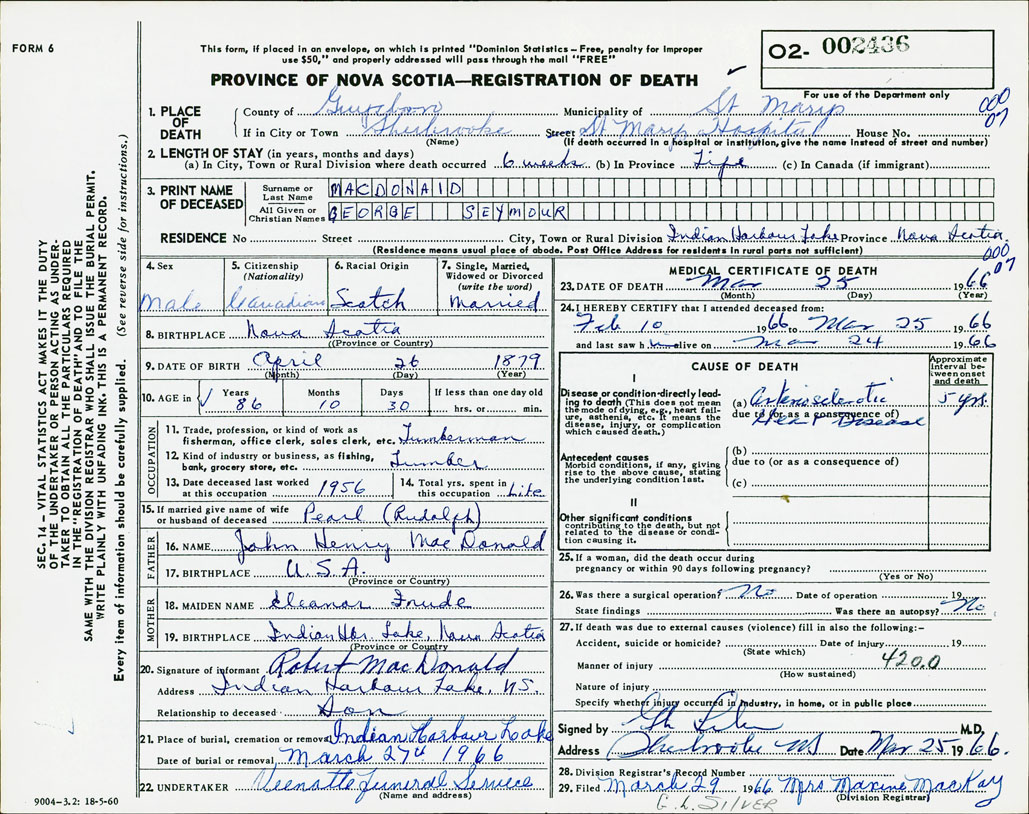 FORM 6
This form, if placed in an envelope, on which is printed "Dominion Statistics—Free, penalty for improper
use $50," and properly addressed will pass through the mail "FREE"
PROVINCE OF NOVA SCOTIA—REGISTRATION OF DEATH
O2- 002436
For use of the Department only
000
07
1. PLACE OF DEATH County of Guysboro Municipality of St Marys
If in City or Town Sherbrooke Street St Marys Hospital House No.
(Name) (If death occurred in a hospital or institution, give the name instead of street and number)
2. LENGTH OF STAY (in years, months and days)
(a) In City, Town or Rural Division where death occurred 6 weeks (b) In Province Life (c) In Canada (if immigrant)
3. PRINT NAME OF DECEASED Surname or Last Name MACDONALD
All Given or Christian Names GEORGE SEYMOUR
RESIDENCE No Street City, Town or Rural Division Indian Harbour Lake Province Nova Scotia
(Residence means usual place of abode. Post Office Address for residents in rural parts not sufficient)
000
07
4. Sex Male
5. Citizenship (Nationality) Canadian
6. Racial Origin Scotch
7. Single, Married, Widowed or Divorced (write the word) Married
8. BIRTHPLACE Nova Scotia
(Province or Country)
9. DATE OF BIRTH April 26 1879
(Month) (Day) (Year)
10. AGE in √ Years 86 Months 10 Days 30 If less than one day old hrs. or min.
OCCUPATION
11. Trade, profession, or kind of work as
fisherman, office clerk, sales clerk, etc. Lumberman
12. Kind of industry or business, as fishing,
bank, grocery store, etc. Lumber
13. Date deceased last worked at this occupation 1956
14. Total yrs. spent in this occupation Life
15. If married give name of wife
or husband of deceased Pearl (Rudolph)
FATHER
16. NAME John Henry MacDonald
17. BIRTHPLACE U.S.A.
(Province or Country)
MOTHER
18. MAIDEN NAME Eleanor Frude
19. BIRTHPLACE Indian Hbr. Lake, Nova Scotia
(Province or Country)
20. Signature of informant Robert MacDonald
Address Indian Harbour Lake, N.S.
Relationship to deceased Son
21. Place of burial, cremation or removal Indian Harbour Lake
Date of burial or removal March 27th 1966
22. UNDERTAKER Funeral Service
(Name and address)
MEDICAL CERTIFICATE OF DEATH
23. DATE OF DEATH Mar 25 1966
(Month) (Day) (Year)
24. I HEREBY CERTIFY that I attended deceased from:
Feb 10 1966 to Mar 25 1966
and last saw h im alive on Mar 24 1966
CAUSE OF DEATH
Approximate interval between onset and death
I
Disease or condition directly leading to death (This does not mean the mode of dying, e.g., heart failure, asthenia, etc. It means the disease, injury, or complication which caused death.)
(a) Arteriosclerotic 5 yrs.
due to (or as a consequence of)
Heart Disease
Antecedent causes
Morbid conditions, if any, giving rise to the above cause, stating the underlying condition last.
(b)
due to (or as a consequence of)
(c)
II
Other significant conditions
contributing to the death, but not related to the disease or condition causing it.
25. If a woman, did the death occur during
pregnancy or within 90 days following pregnancy?
(Yes or No)
26. Was there a surgical operation? No Date of operation 19
State findings Was there an autopsy? No
27. If death was due to external causes (violence) fill in also the following:—
Accident, suicide or homicide? Date of injury 19
(State which)
Manner of injury 420.0
(How sustained)
Nature of injury
Specify whether injury occurred in industry, in home, or in public place
Signed by M.D.
Address Sherbrooke NS Date Mar 25 1966.
28. Division Registrar's Record Number
29. Filed March 29 1966 Mrs Maxine MacKay
(Division Registrar)
G.L. SILVER
9004—3.2: 18-5-60
SEC. 14—VITAL STATISTICS ACT MAKES IT THE DUTY
OF THE UNDERTAKER OR PERSON ACTING AS UNDER-
TAKER TO OBTAIN ALL THE PARTICULARS REQUIRED
IN THE "REGISTRATION OF DEATH" AND TO FILE THE
SAME WITH THE DIVISION REGISTRAR WHO SHALL ISSUE THE BURIAL PERMIT.
WRITE PLAINLY WITH UNFADING INK. THIS IS A PERMANENT RECORD.
Every item of information should be carefully supplied. (See reverse side for instructions.)